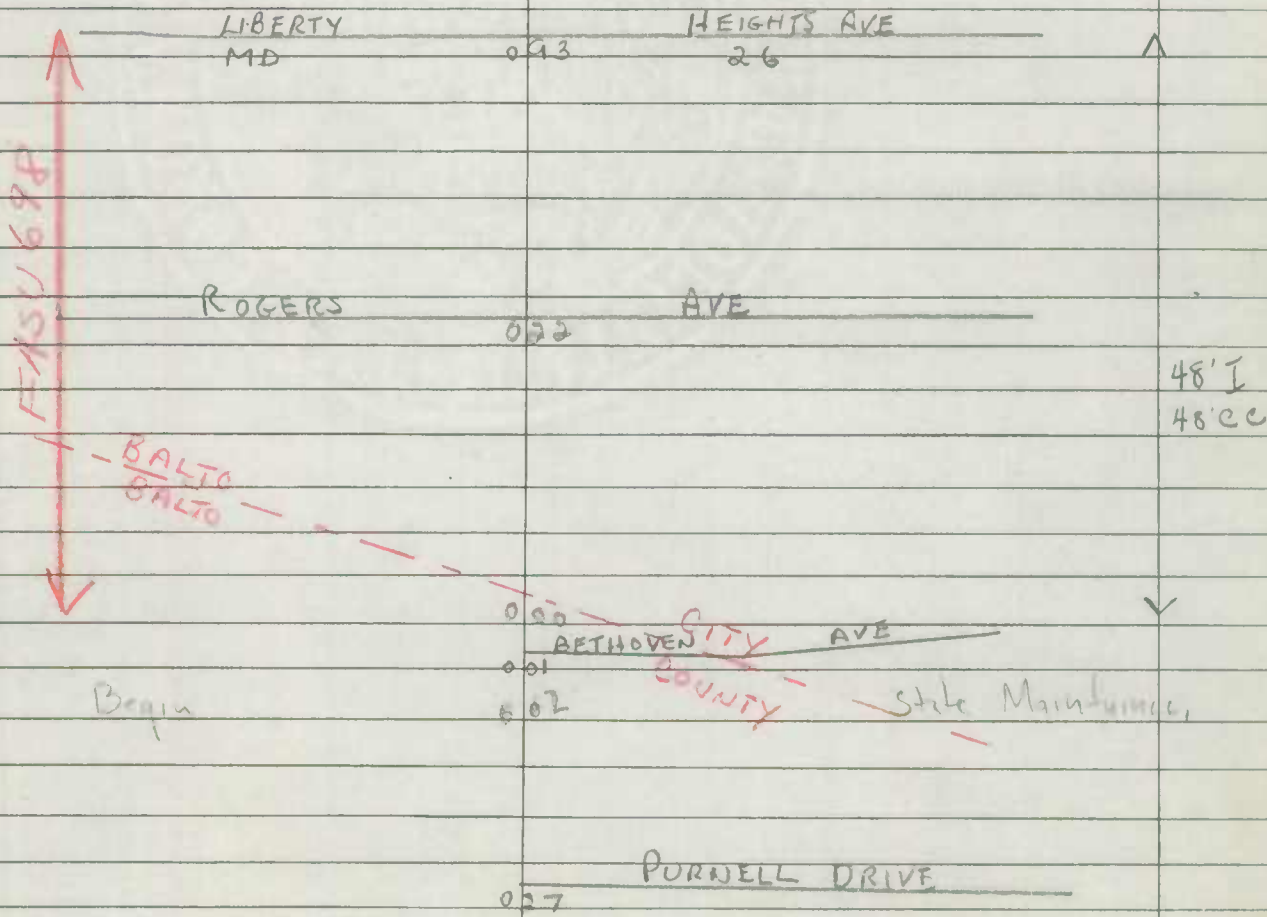 LIBERTY HEIGHTS AVE
MD 0 43 26
FASU 698
ROGERS AVE
0 22
48' I
48' CC
BALTO
BALTO
0 00
CITY
BETHOVEN AVE
0 01
COUNTY
Begin 0 02 State Maintenance
PURNELL DRIVE
0 27